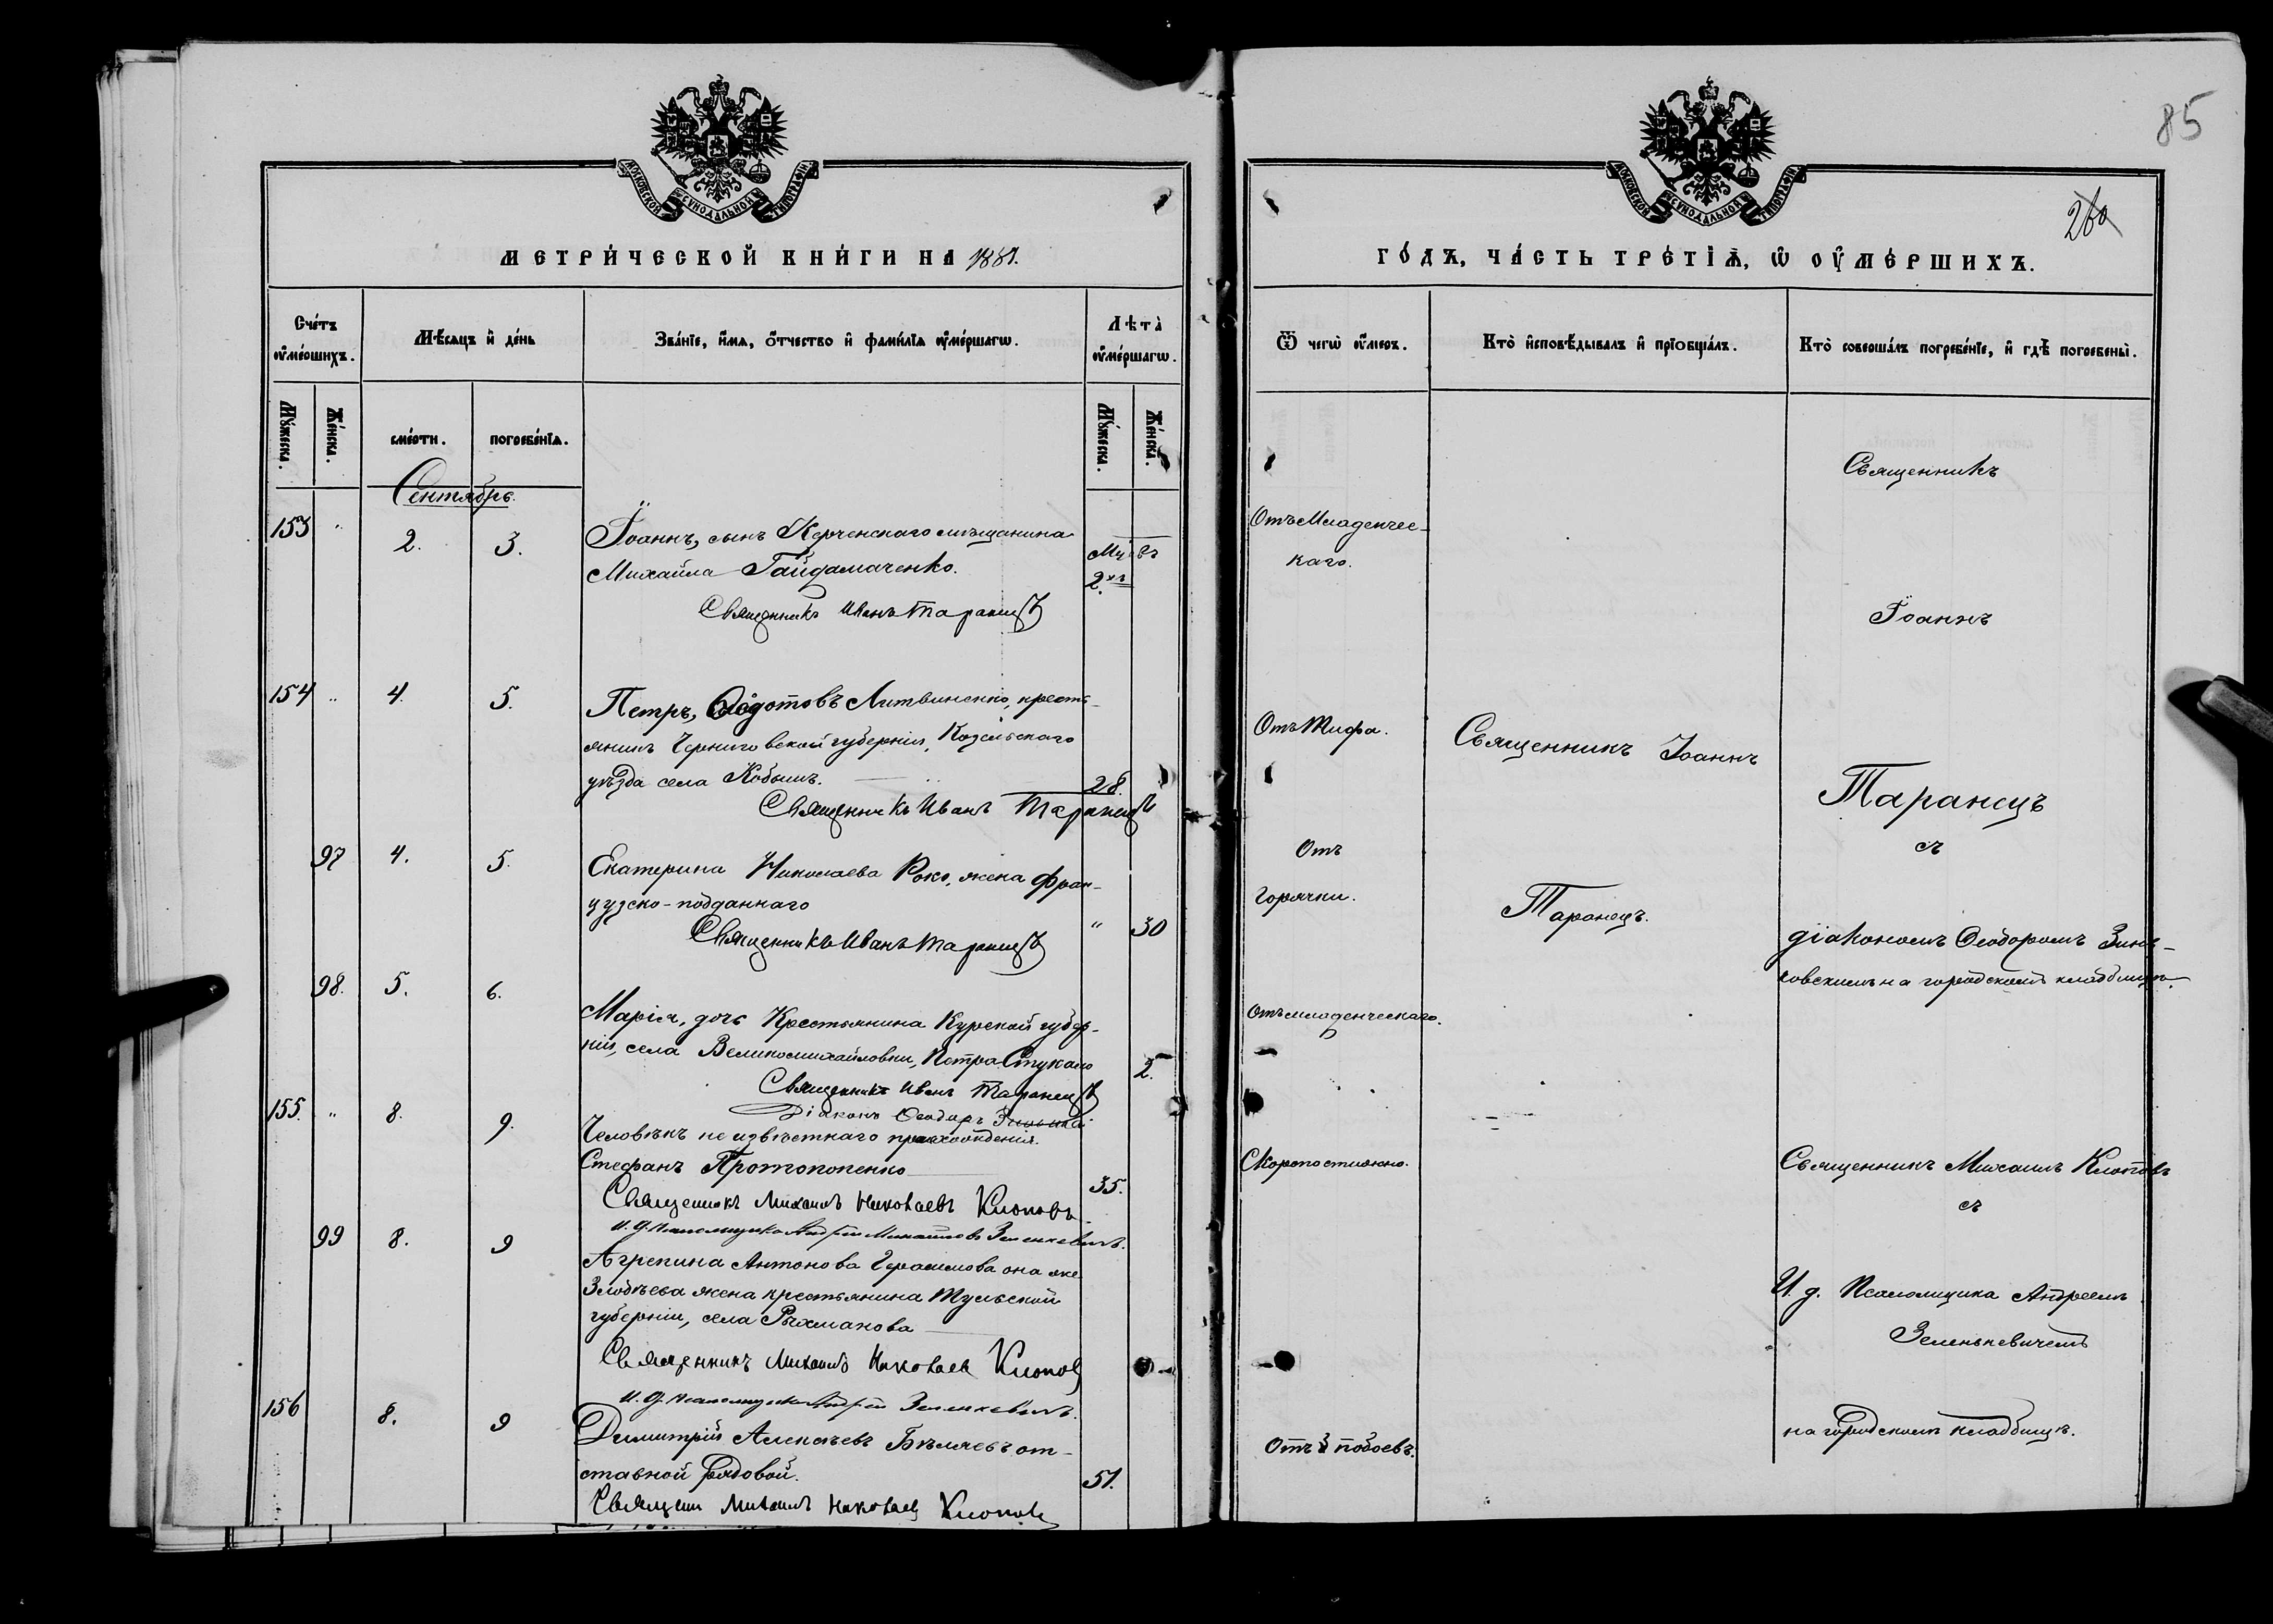 85
260
МОСКОВСКОЙ СѴНОДАЛЬНОЙ ТИПОГРАФІИ
МОСКОВСКОЙ СѴНОДАЛЬНОЙ ТИПОГРАФІИ
МЕТРИ́ЧЕСКОЙ КНИ́ГИ НА 1881.
ГО́ДЪ, ЧА́СТЬ ТРЕ́ТІѦ, Ѡ ОУМЕ́РШИХЪ.
Сче́тъ оуме́ршихъ.
Мꙋ́жеска.
Же́нска.
Мѣ́сяцъ и де́нь
сме́рти.
погребе́нїѧ.
Зва́нїе, и́мѧ, о́тчество и фами́лїѧ оуме́ршагѡ.
Лѣта̀ оуме́ршагѡ.
Мꙋ́жеска.
Же́нска.
Ѿ чегѡ̀ оу́меръ.
Кто̀ исповѣ́дывалъ и прїобща́лъ.
Кто̀ соверша́лъ погребе́нїе, и гдѣ̀ погребены̀.
Сентябрь.
153 " 2. 3.
Іоаннъ, сынъ Керченскаго мѣщанина
Михайла Гайдамаченко.
2.
Священникъ Иванъ Таранецъ
Отъ Младенчес-
каго.
154 " 4. 5.
Петръ, Ѳедотовъ Литвиненко, кресть-
янинъ Черниговской губерніи, Козельскаго
уѣзда села Кобыж.
28.
Священникъ Иванъ Таранецъ
Отъ Тифа.
Священникъ Іоаннъ
97 4. 5.
Екатерина Николаева Роко, жена фран-
цузско-подданнаго
" 30
Священникъ Иванъ Таранецъ
Отъ
горячки.
Таранецъ.
98. 5. 6.
Марія, дочь Крестьянина Курской губер-
ніи, села Великомихайловки, Петра Стукало
2.
Священникъ Иванъ Таранецъ
Діаконъ Ѳеодоръ
Отъ младенческаго.
Священникъ
Іоаннъ
Таранецъ
съ
діакономъ Ѳеодоромъ Зинь-
ковскимъ на городскомъ кладбищѣ.
155. " 8. 9.
Человѣкъ неизвѣстнаго происхожденія.
Стефанъ Протопопенко
35.
Священникъ Михаилъ Николаевъ Клоповъ
И. д. Псаломщика Андрей Михайловъ Зеленкевичъ.
Скоропостижно.
Священникъ Михаилъ Клоповъ
съ
99 8. 9
Агрепина Антонова Герасимова она же
Злобѣева жена крестьянина Тульской
губерніи, села Рахманова
Священникъ Михаилъ Николаев Клопов
И. д. Псаломщика Андрей Зеленкевичъ.
И. д. Псаломщика Андреемъ
Зеленкевичемъ
156 8. 9
Димитрій Алексѣевъ Бѣляевъ от-
ставной рядовой.
51.
Священ Михаилъ Николаев Клопов
Отъ побоевъ.
на городскомъ кладбищѣ.